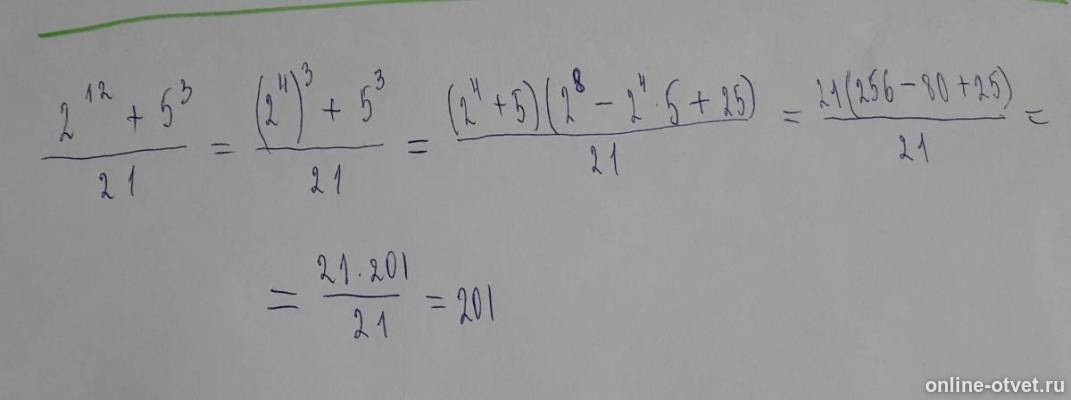 (2¹² + 5³)/21 = ((2⁴)³ + 5³)/21 = ((2⁴ + 5)(2⁸ − 2⁴·5 + 25))/21 = (21(256 − 80 + 25))/21 =
= (21·201)/21 = 201
online-otvet.ru